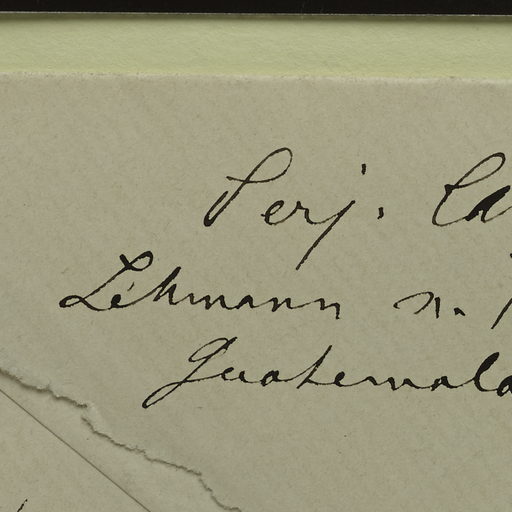 Perj. Ca
Lehmann n.
Guatemala